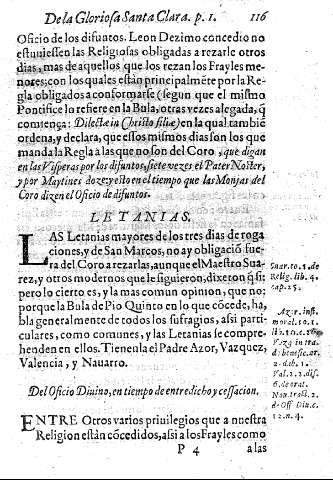 De la Gloriosa Santa Clara. p. 1. 116
Oficio de los difuntos. Leon Dezimo concedio no
estuuiessen las Religiosas obligadas a rezarle otros
dias, mas de aquellos que los rezan los Frayles me
nores; con los quales están principalmẽte por la Re
gla obligados a conformarse (segun que el mismo
Pontifice lo refiere en la Bula, otras vezes alegada, q̃
comiença: Dilectæ in Christo filiæ) en la qual tambiẽ
ordena, y declara, que essos mismos dias son los que
manda la Regla a las que no son del Coro, que digan
en las Visperas por los difuntos, siete vezes el Pater Noster,
y por Maytines doze: y esto en el tiempo que las Monjas del
Coro dizen el Oficio de difuntos.
LETANIAS.
LAS Letanias mayores de los tres dias de roga
ciones, y de San Marcos, no ay obligació fue
ra del Coro a rezarlas, aunque el Maestro Sua
rez, y otros modernos que le siguieron, dixeron q̃ si:
pero lo cierto es, y la mas comun opinion, que no:
porque la Bula de Pio Quinto en lo que cõcede, ha,
bla generalmente de todos los sufragios, assi par-
ticulares, como comunes, y las Letanias se compre
henden en ellos. Tienenla el Padre Azor, Vazquez,
Valencia, y Nauarro.
Suar. to. 1. de
Relig. lib. 4.
cap. 25.
Azor. inst.
moral. to. 1.
Vazq in tra
d: benefic. ar.
2. d. b. 1.
Val. 2. 2. dis.
6. de orat.
d- Off Diu. c.
12. n. 4.
Del Oficio Diuino, en tiempo de entredicho y cessacion.
ENTRE Otros varios priuilegios que a nuestra
Religion están cõcedidos, assi a los Frayles como
P 4 a las